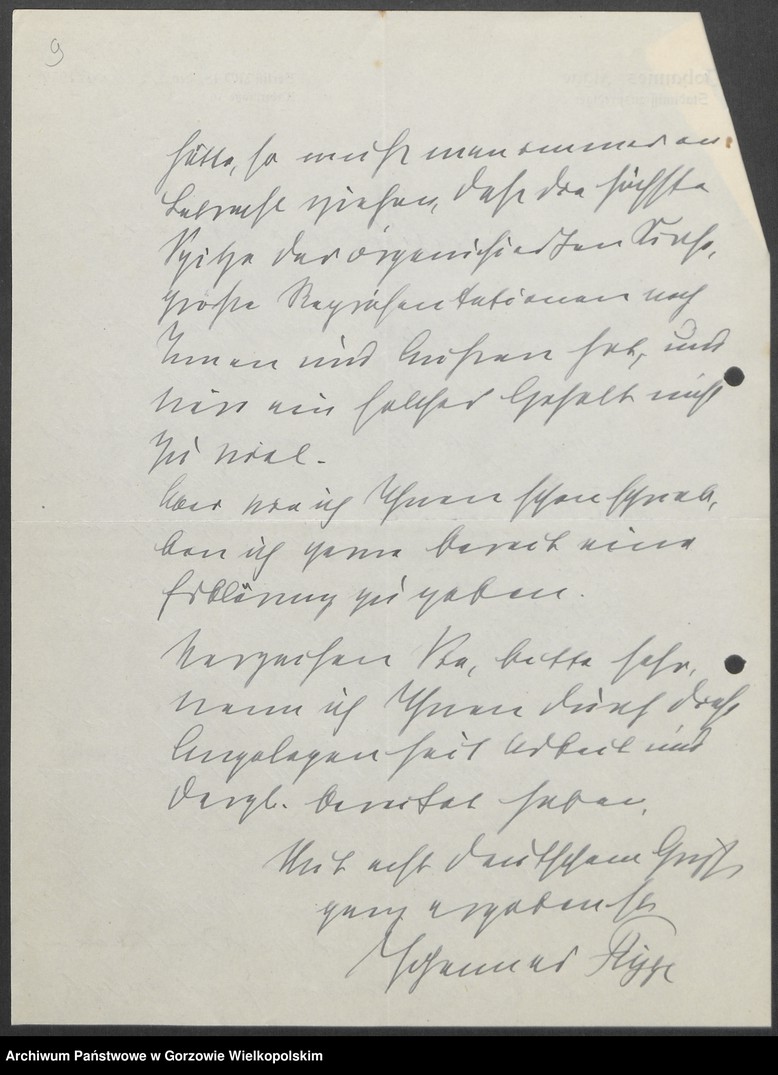 9
hätte, so muß man immer in
Betracht ziehen, daß die höchste
Spitze der organisierten Kirche,
große Repräsentationen nach
Innen und Außen hat, und
wäre ein solches Gehalt nicht
zu viel.
Aber wie ich Ihnen schon schrieb,
bin ich gerne bereit eine
Erklärung zu geben.
Verzeihen Sie, bitte sehr,
wenn ich Ihnen durch diese
Angelegenheit Arbeit und
dergl. bereitet habe.
Mit echt deutschem Gruß
ganz ergebenst
Johannes
Archiwum Państwowe w Gorzowie Wielkopolskim